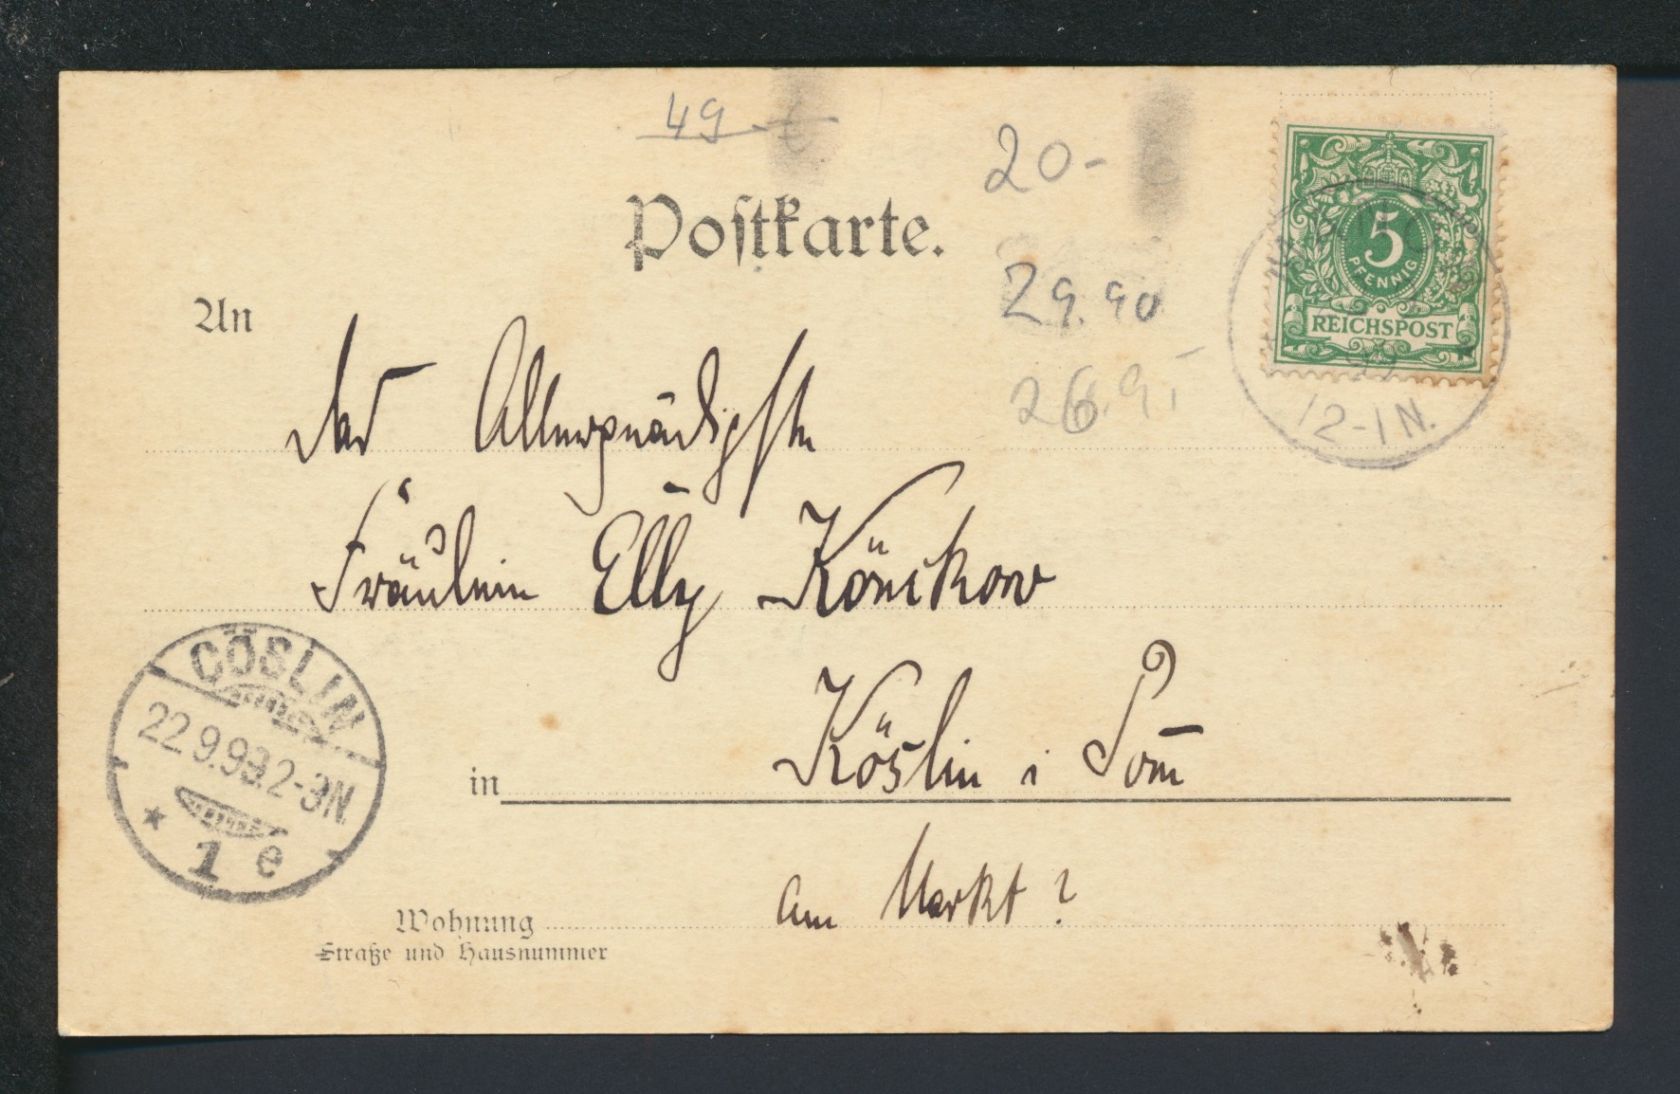 49
20-
Postkarte.
29.90
26.9,-
5
PFENNIG
REICHSPOST
99
12-1N.
An
Das Allergnädigste
Fräulein Elly Könikow
CÖSLIN
22.9.99.2-3N.
1 e
in Köslin i Pom
Wohnung am Markt?
Straße und Hausnummer